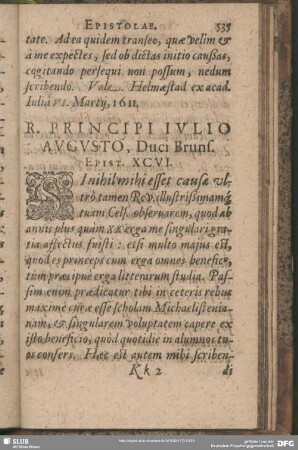 EPISTOLAE. 535
tate. Ad ea quidem transeo, quæ velim &
à me expectes, sed ob dictas initio caussas,
cogitando persequi non possum, nedum
scribendo. Vale. Helmæstad ex acad.
Iuliâ VI. Martij, 1611.
R. PRINCIPI IVLIO
AVGVSTO, Duci Bruns.
EPIST. XCVI.
SI nihil mihi esset causæ vl-
trò tamen Rev. illustrissimamq;
tuam Cels. observarem, quod ab
annis plus quàm XX erga me singulari gra-
tia affectus fuisti: etsi multo majus est,
quod es princeps cum erga omnes benefice,
tum præcipuè erga litterarum studia. Pas-
sim enim prædicatur tibi in ceteris rebus
maximè curæ esse scholam Michaelistenia-
nam, & singularem voluptatem capere ex
isto beneficio, quòd quotidie in alumnos tu-
os confers. Hæc est autem mihi scriben-
Kk 2 di
SLUB
DFG